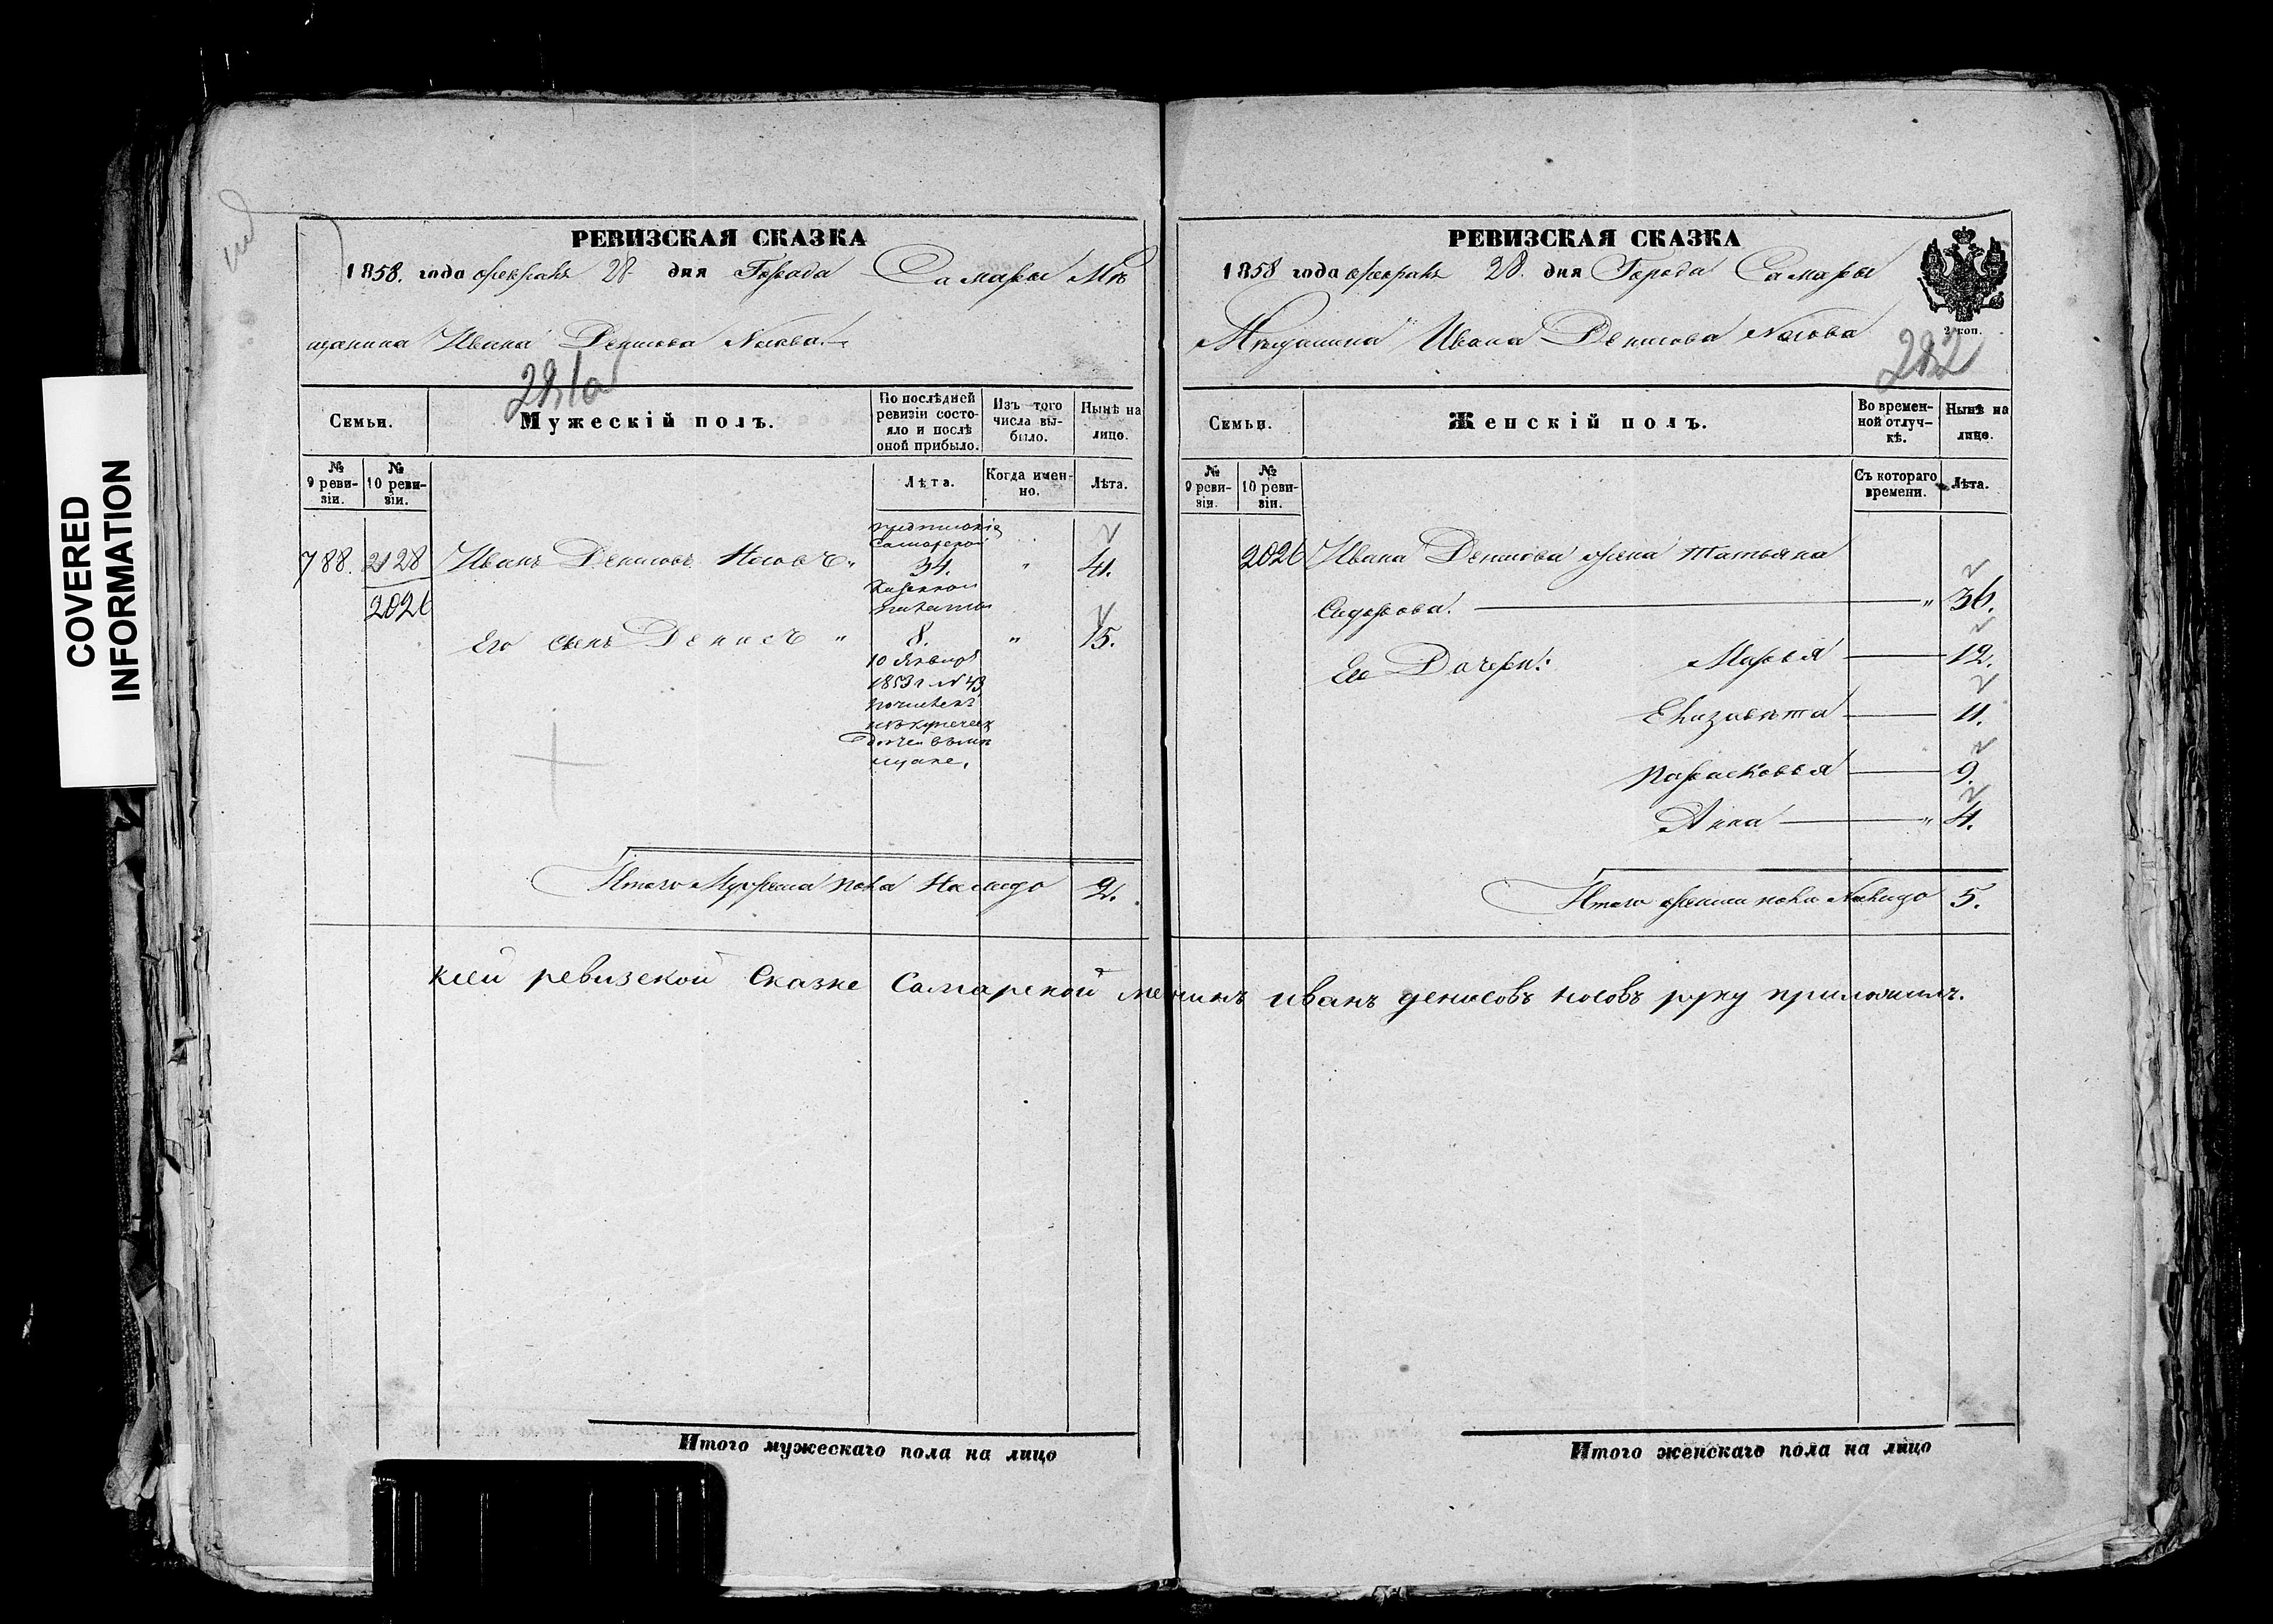 COVERED
INFORMATION
РЕВИЗСКАЯ СКАЗКА
1858. года февраля 28 дня Города Самары Мѣ
щанина Ивана Денисова Носова.
281а
Семьи.
Мужескій полъ.
По послѣдней ревизіи состо-
яло и послѣ оной прибыло.
Изъ того числа вы-
было.
Нынѣ на лицо.
№ 9 реви-
зіи.
№ 10 реви-
зіи.
Лѣта.
Когда имен-
но.
Лѣта.
предписанія
Самарской
788. 2128 Иванъ Денисовъ Носовъ „ 34. „ 41.
Казенной
палаты
2026
Его сынъ Денисъ „ 8. „ 15.
10 Января
1853 г № 43
причисленъ
щане,
Итого Мужеска пола на лицо 2.
РЕВИЗСКАЯ СКАЗКА
1858 года февраля 28. дня Города Самары
Мѣщанина Ивана Денисова Носова
2 коп.
282
Семьи.
Женскій полъ.
Во времен-
ной отлуч-
кѣ.
Нынѣ на лицо.
№ 9 реви-
зіи.
№ 10 реви-
зіи.
Съ котораго времени.
Лѣта.
2026 Ивана Денисова жена Татьяна
Сидорова. „ 36.
Его Дочери: Марья 12.
Елизавѣта 11.
Парасковья 9.
Анна „ 4.
Итого женска пола Налицо 5.
ксеи ревизской Сказке Самарской мещинъ иванъ денисовъ носовъ руку приложилъ.
Итого мужескаго пола на лицо
Итого женскаго пола на лицо